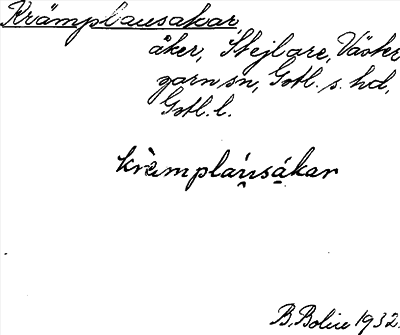 Krämplausakar
åker, Stejlare, Väster
garn sn, Gotl. s. hd,
Gotl. l.
krämplau̇sákar
B. Bolin 1932.